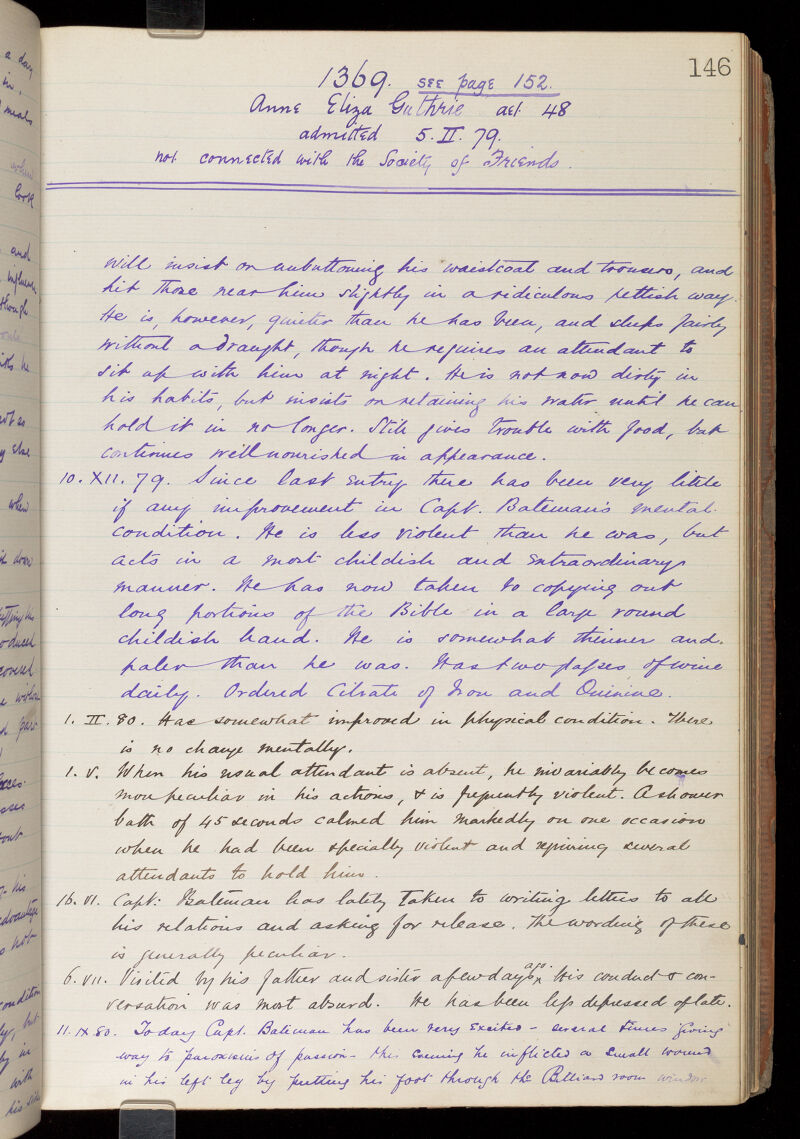 146
1369. SEE page 152.
Anne Eliza Guthrie aet. 48
admitted 5. II. 79.
not connected with the Society of Friends.
will insist on unbuttoning his waistcoat and trousers, and
hit those near him slightly in a ridiculous pettish way.
He is, however, quieter than he has been, and sleeps fairly
without a draught, though he requires an attendant to
sit up with him at night. He is not now dirty in
his habits, but insists on retaining his water until he can
hold it in no longer. Still gives trouble with food, but
continues well nourished in appearance.
10. XII. 79. Since last entry there has been very little
if any improvement in Capt. Bateman's mental
condition. He is less violent than he was, but
acts in a most childish and extraordinary
manner. He has now taken to copying out
long portions of the Bible in a large round
childish hand. He is somewhat thinner and
paler than he was. Has two glasses of wine
daily. Ordered Citrate of Iron and Quinine.
1. II. 80. Has somewhat improved in physical condition. There
is no change mentally.
1. V. When his usual attendant is absent, he invariably becomes
more peculiar in his actions, & is frequently violent. A shower
bath of 45 seconds calmed him markedly on one occasion
when he had been specially violent and requiring several
attendants to hold him.
16. VI. Capt: Bateman has lately taken to writing letters to all
his relations and asking for release. The wording of these
is generally peculiar.
6. VII. Visited by his father and sister a few days ago. His conduct & con-
versation was most absurd. He has been less depressed of late.
11. IX 80. Today Capt. Bateman has been very excited - several times giving
way to paroxisms of passion - this evening he inflicted a small wound
in his left leg by putting his foot through the Billiard room window
a day
in,
meals
when
look
and
influence
though
when